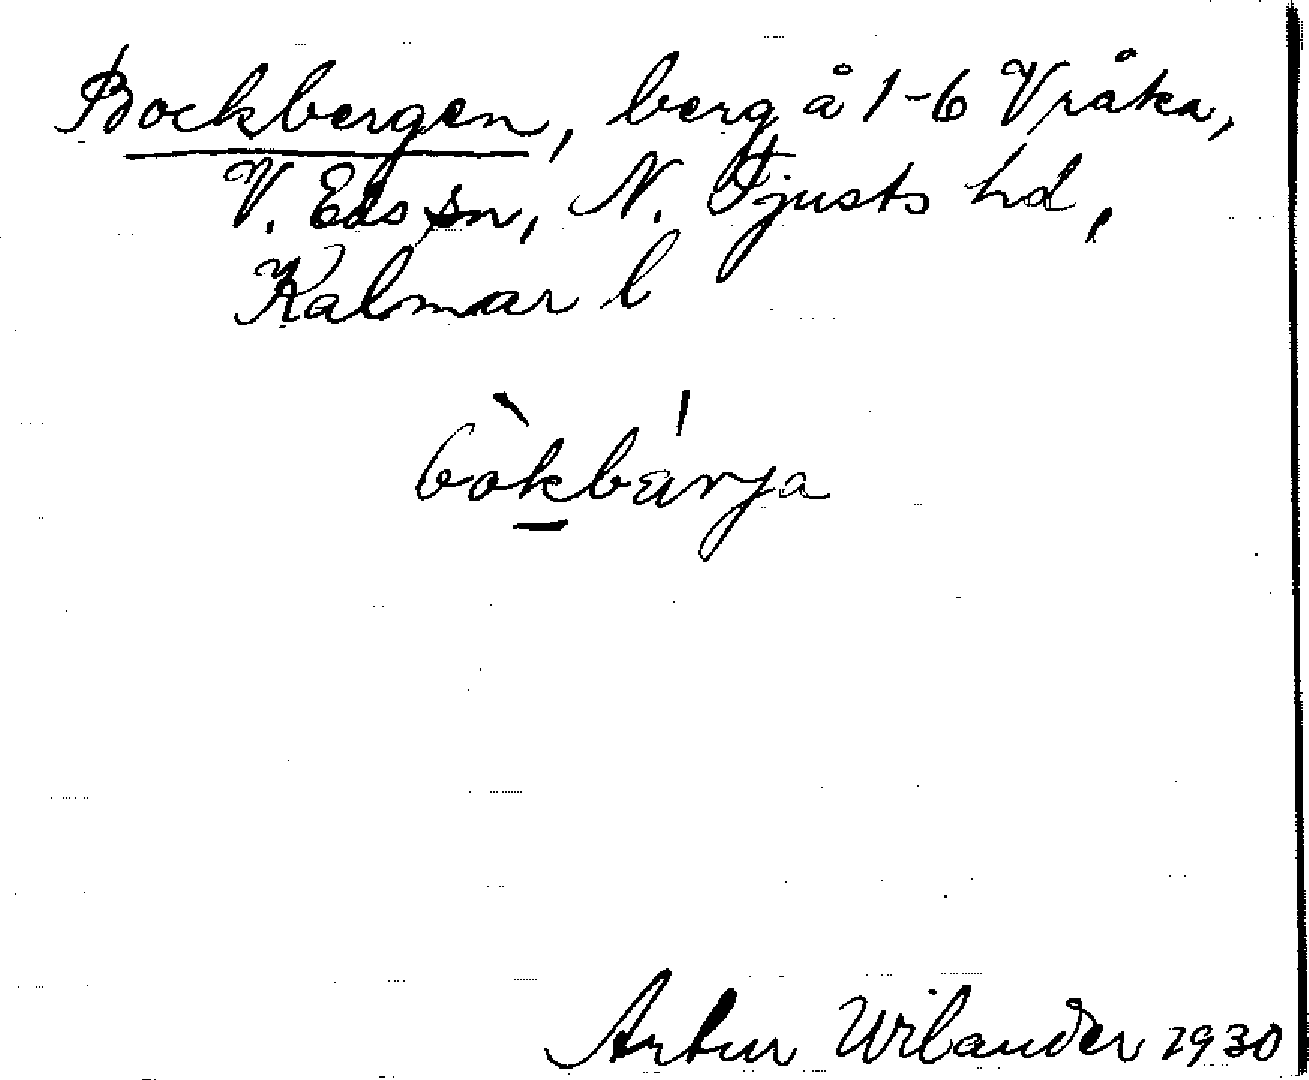 Bockbergen, berg å 1-6 Vråka,
V. Eds sn, N. Tjusts hd,
Kalmar l
bòkbárja
Artur Wilander 1930